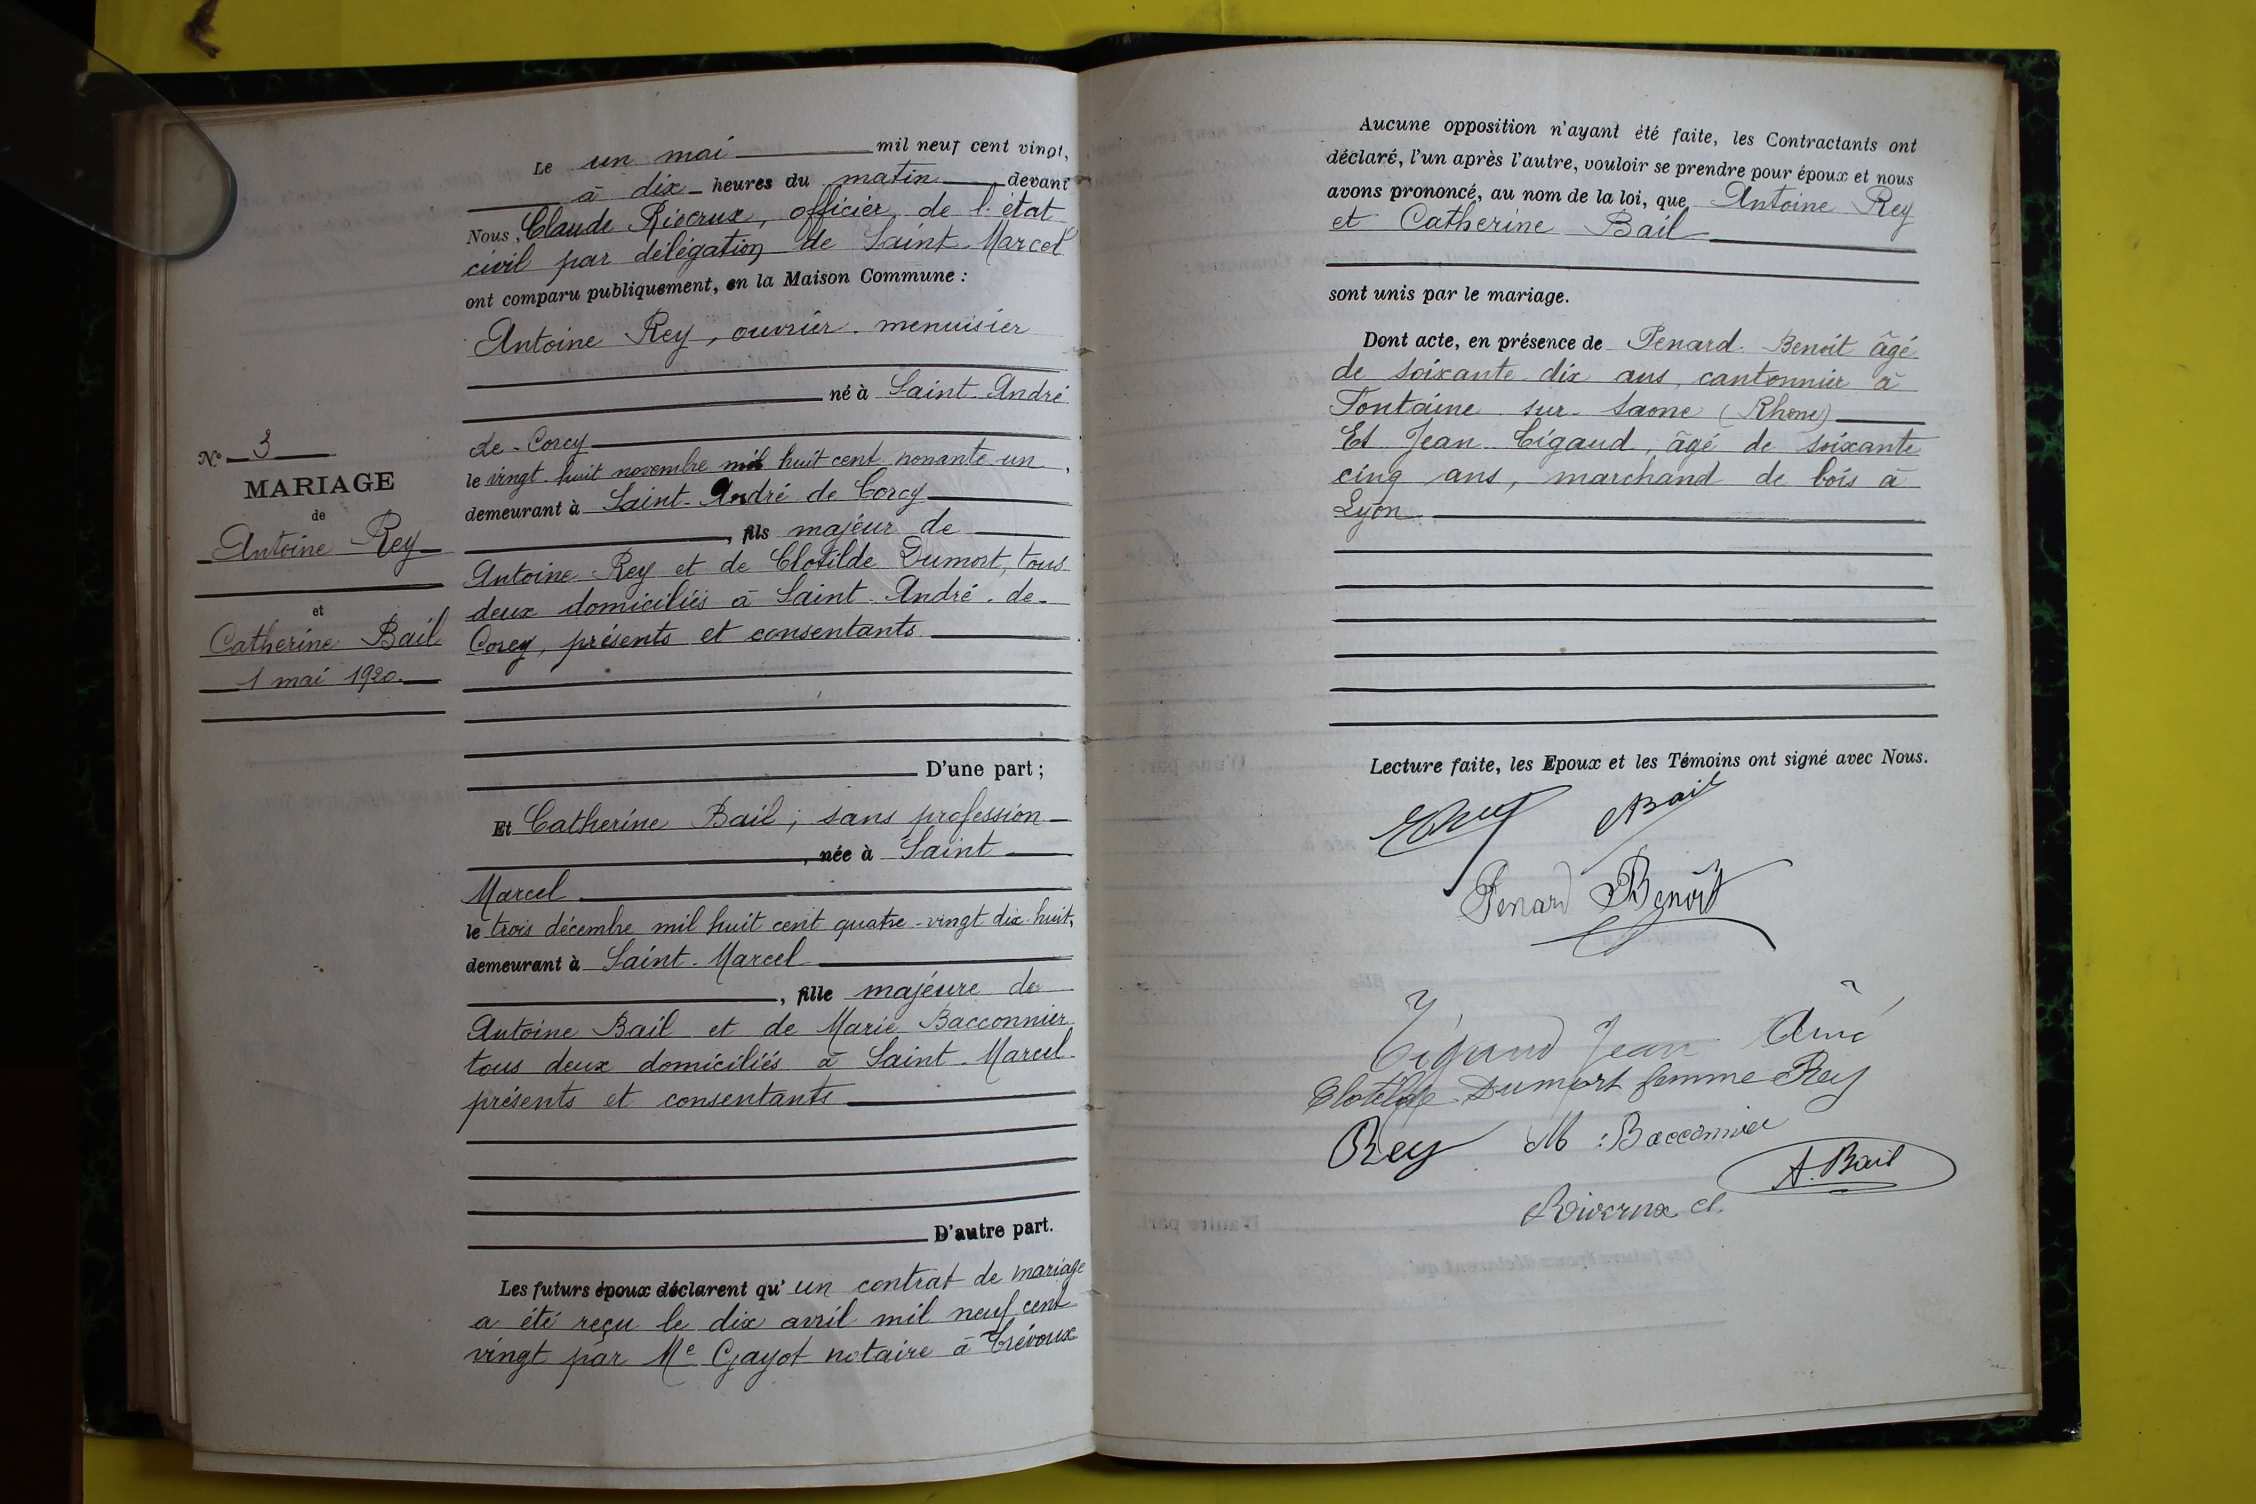 N° 3
MARIAGE
de
Antoine Rey
et
Catherine Bail
1 mai 1920.
Le un mai mil neuf cent vingt,
à dix heures du matin devant
Nous, Claude Riecrux, officier de l'état
civil par délégation de Saint-Marcel
ont comparu publiquement, en la Maison Commune :
Antoine Rey, ouvrier-menuisier
né à Saint-André
de-Corcy
le vingt-huit novembre mil huit cent nonante-un,
demeurant à Saint-André de Corcy
, fils majeur de
Antoine Rey et de Clotilde Dumort, tous
deux domiciliés à Saint-André-de-
Corcy, présents et consentants
D'une part ;
Et Catherine Bail ; sans profession
, née à Saint
Marcel
le trois décembre mil huit cent quatre-vingt dix-huit,
demeurant à Saint-Marcel
, fille majeure de
Antoine Bail et de Marie Bacconnier
tous deux domiciliés à Saint-Marcel
présents et consentants
D'autre part.
Les futurs époux déclarent qu'un contrat de mariage
a été reçu le dix avril mil neuf cent
vingt par Me Gayot notaire à Trévoux
Aucune opposition n'ayant été faite, les Contractants ont
déclaré, l'un après l'autre, vouloir se prendre pour époux et nous
avons prononcé, au nom de la loi, que Antoine Rey
et Catherine Bail
sont unis par le mariage.
Dont acte, en présence de Penard Benoît âgé
de soixante-dix ans, cantonnier à
Fontaine-sur-Saone (Rhone)
Et Jean Tigaud, âgé de soixante
cinq ans, marchand de bois à
Lyon
Lecture faite, les Epoux et les Témoins ont signé avec Nous.
Bail
Penard Benoît
Tigaud Jean Aîné
Clotilde Dumort femme Rey
Rey M : Bacconnier
A. Bail